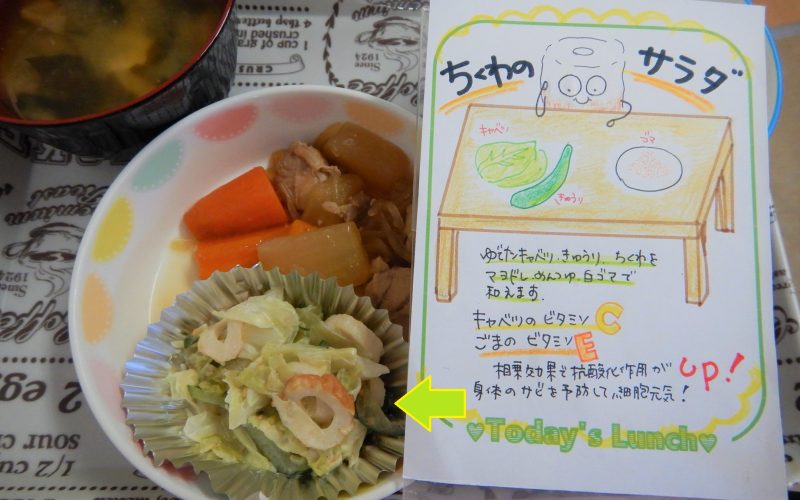 ちくわの サラダ
キャベツ
ゴマ
きゅうり
ゆでたキャベツ、きゅうり、ちくわを
マヨドレ、めんつゆ、白ゴマで
和えます。
キャベツのビタミンC
ごまのビタミンE
相乗効果で抗酸化作用がUP!
身体のサビを予防して、細胞元気!
♥Today's Lunch♥
1 cup of
crushed in
Since
1924
Coffee
Premium
Roast
Since
1924
Coffee
2 egg
sour
1/2 c